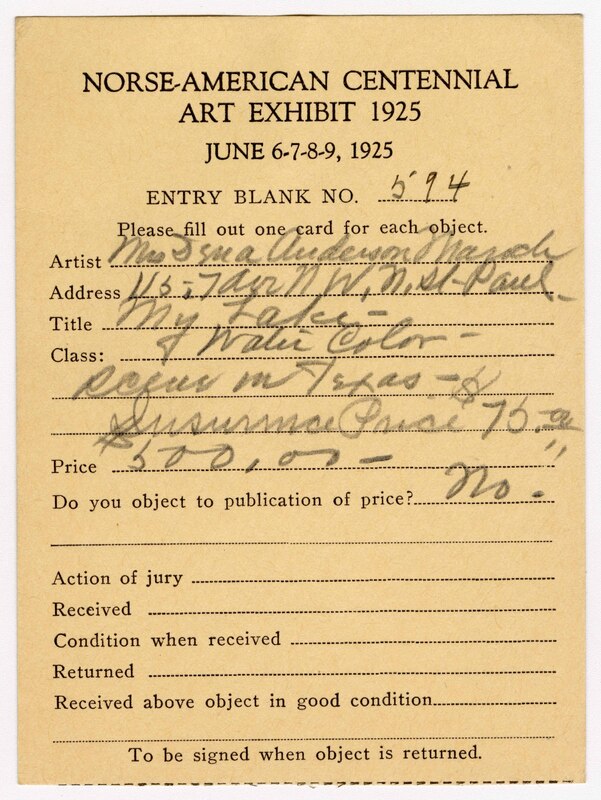 NORSE-AMERICAN CENTENNIAL
ART EXHIBIT 1925
JUNE 6-7-8-9, 1925
ENTRY BLANK NO. 594
Please fill out one card for each object.
Artist Mrs Dena Anderson
Address 115-7 Ave N W, N, St-Paul-
Title My Lake-
Class: Water Color-
scene in Texas-
Insurance Price 75.00
Price $500,00-
Do you object to publication of price? No.
Action of jury
Received
Condition when received
Returned
Received above object in good condition
To be signed when object is returned.